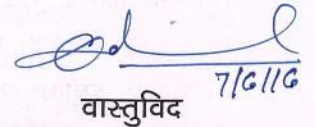 7/6/16
वास्तुविद